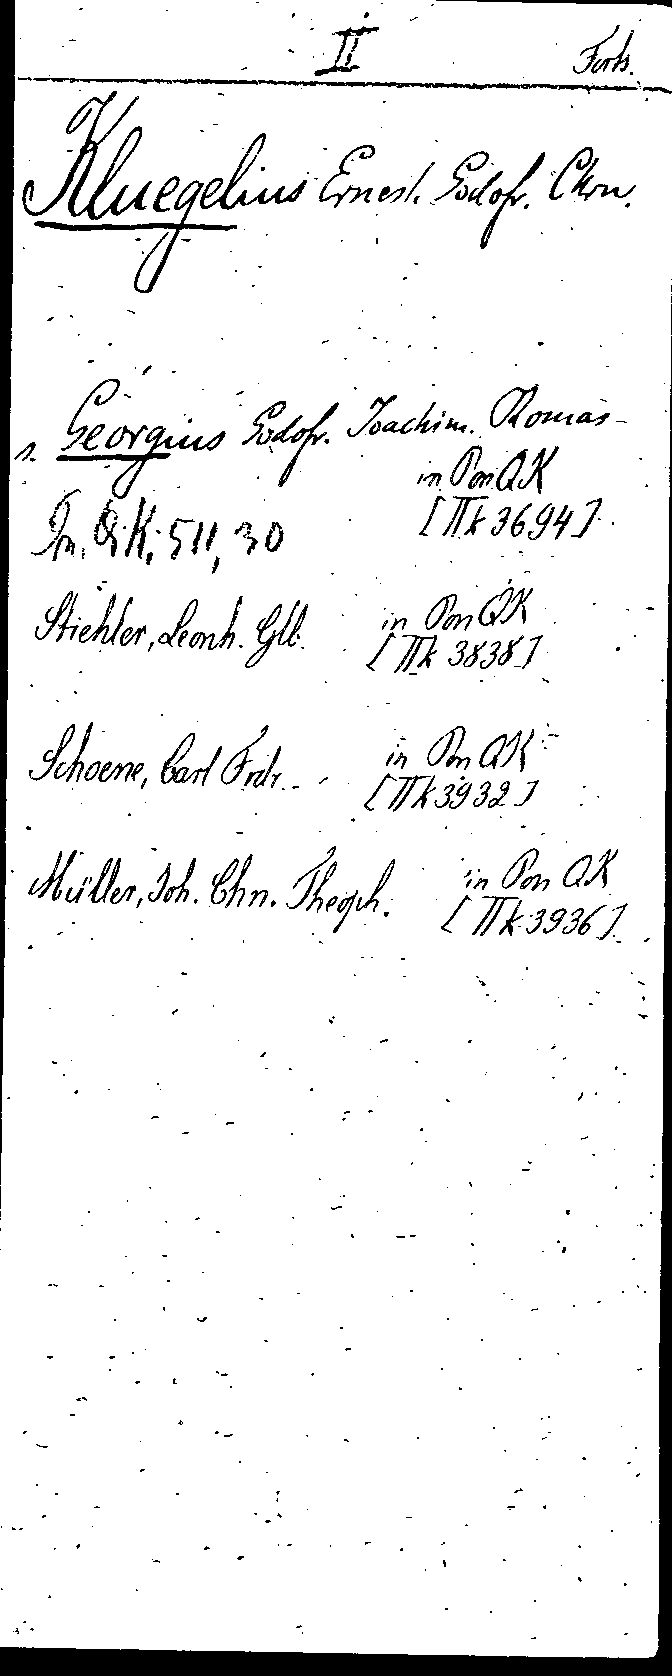 II Forts.
Kluegelius Ernest. Godofr. Chrn.
s. Georgius Godofr. Joachim. Thomas
in Pon QK
[IIk 3694]
In. QK, 511, 30
Stiehler, Leonh. Glb. in Pon QK
[IIk 3838]
Schoene, Carl Frdr. in Pon QK
[IIk 3932]
Müller, Joh. Chn. Theoph. in Pon QK
[IIk 3936]